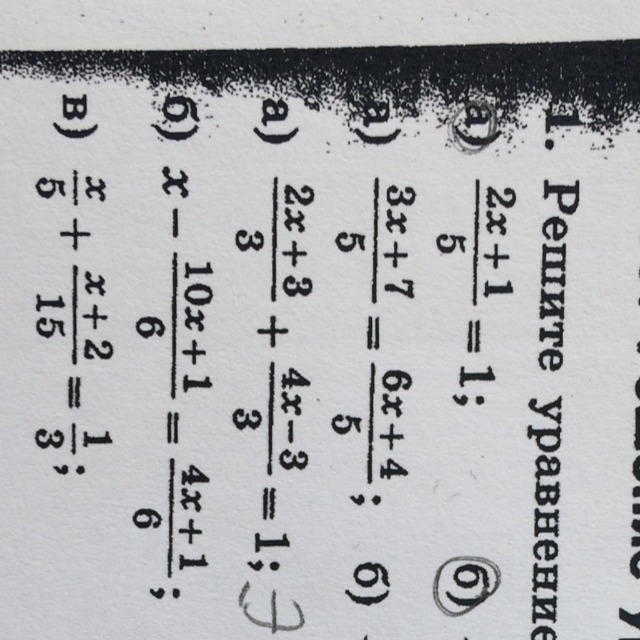 1. Решите уравнение
а) (2x + 1)/5 = 1; б)
а) (3x + 7)/5 = (6x + 4)/5; б)
а) (2x + 3)/3 + (4x − 3)/3 = 1;
б) x − (10x + 1)/6 = (4x + 1)/6;
в) x/5 + (x + 2)/15 = 1/3;